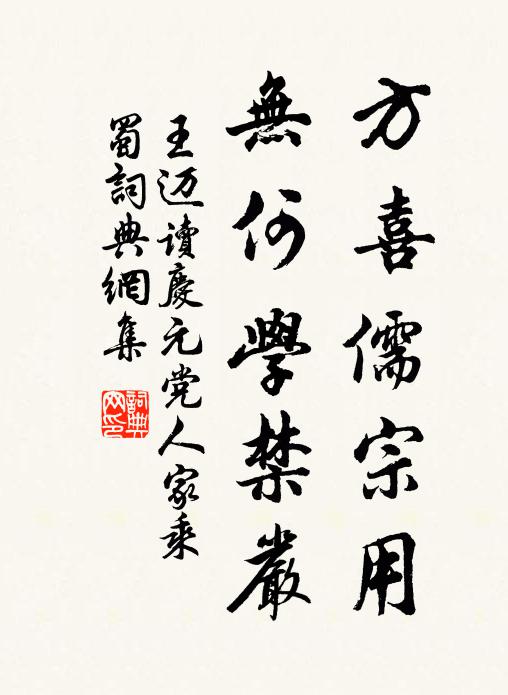 方喜儒宗用
無何學禁嚴
王迈讀慶元党人家乘
蜀詞典網集
詞典网印